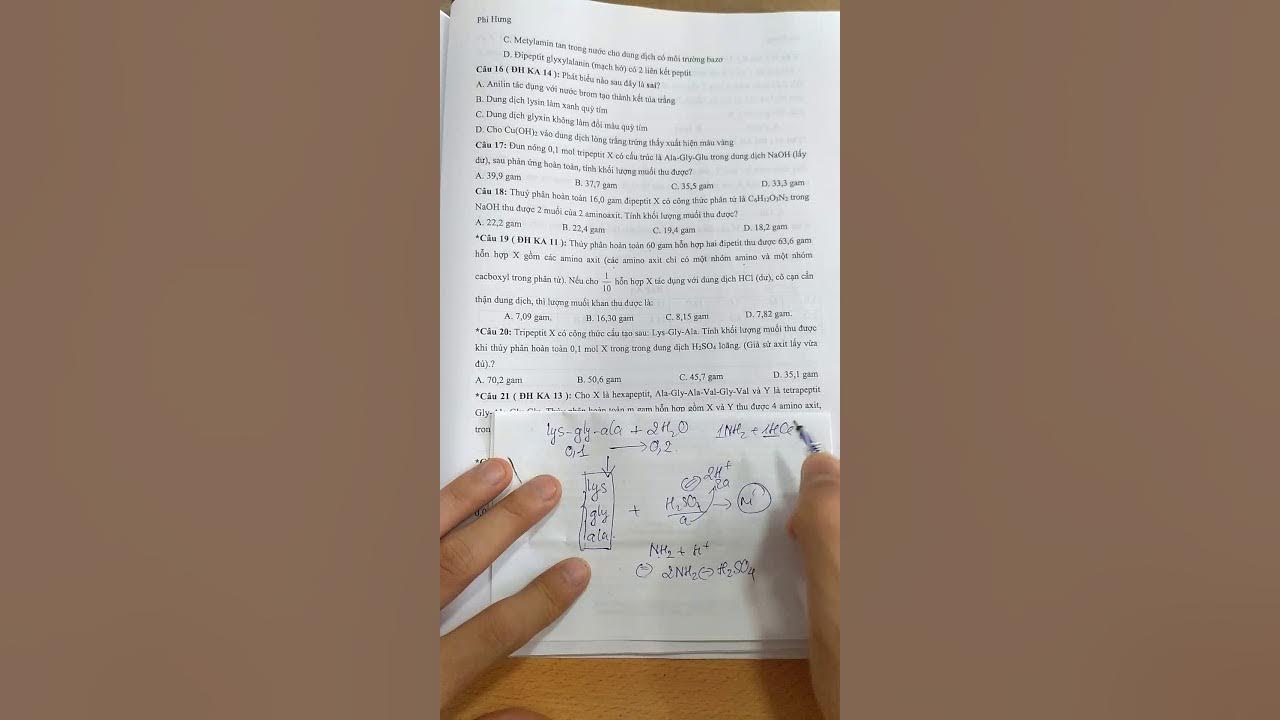 Phi Hưng
C. Metylamin tan trong nước cho dung dịch có môi trường bazơ
D. Đipeptit glyxylalanin (mạch hở) có 2 liên kết peptit
Câu 16 ( ĐH KA 14 ): Phát biểu nào sau đây là sai?
A. Anilin tác dụng với nước brom tạo thành kết tủa trắng
B. Dung dịch lysin làm xanh quỳ tím
C. Dung dịch glyxin không làm đổi màu quỳ tím
D. Cho Cu(OH)₂ vào dung dịch lòng trắng trứng thấy xuất hiện màu vàng
Câu 17: Đun nóng 0,1 mol tripeptit X có cấu trúc là Ala-Gly-Glu trong dung dịch NaOH (lấy
dư), sau phản ứng hoàn toàn, tính khối lượng muối thu được?
A. 39,9 gam B. 37,7 gam C. 35,5 gam D. 33,3 gam
Câu 18: Thuỷ phân hoàn toàn 16,0 gam đipeptit X có công thức phân tử là C₆H₁₂O₃N₂ trong
NaOH thu được 2 muối của 2 aminoaxit. Tính khối lượng muối thu được?
A. 22,2 gam B. 22,4 gam C. 19,4 gam D. 18,2 gam
*Câu 19 ( ĐH KA 11 ): Thủy phân hoàn toàn 60 gam hỗn hợp hai đipetit thu được 63,6 gam
hỗn hợp X gồm các amino axit (các amino axit chỉ có một nhóm amino và một nhóm
cacboxyl trong phân tử). Nếu cho 1/10 hỗn hợp X tác dụng với dung dịch HCl (dư), cô cạn cẩn
thận dung dịch, thì lượng muối khan thu được là:
A. 7,09 gam. B. 16,30 gam C. 8,15 gam D. 7,82 gam.
*Câu 20: Tripeptit X có công thức cấu tạo sau: Lys-Gly-Ala. Tính khối lượng muối thu được
khi thủy phân hoàn toàn 0,1 mol X trong trong dung dịch H₂SO₄ loãng. (Giả sử axit lấy vừa
đủ).?
A. 70,2 gam B. 50,6 gam C. 45,7 gam D. 35,1 gam
*Câu 21 ( ĐH KA 13 ): Cho X là hexapeptit, Ala-Gly-Ala-Val-Gly-Val và Y là tetrapeptit
Gly- Thủy phân hoàn toàn m gam hỗn hợp gồm X và Y thu được 4 amino axit,
tron
lys-gly-ala + 2H₂O 1NH₂ + 1HCl
0,1 → 0,2
lys ⇔ 2H⁺
2a
gly + H₂SO₄ →
a
ala
NH₂ + H⁺
⇔ 2NH₂ ⇔ H₂SO₄